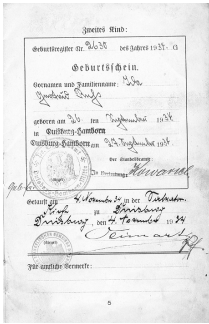 Zweites Kind:
Geburtsregister Nr. 2630 des Jahres 1934
Geburtsschein.
Vornamen und Familienname:
geboren am 26 ten September 1934
in Duisburg-Hamborn
Duisburg-Hamborn am 27. September 1934
Der Standesbeamte
In Vertretung:
Getauft am 4. November 34 in der
Kirche zu Duisburg
Duisburg, den 4. November 1934
Für amtliche Vermerke:
5